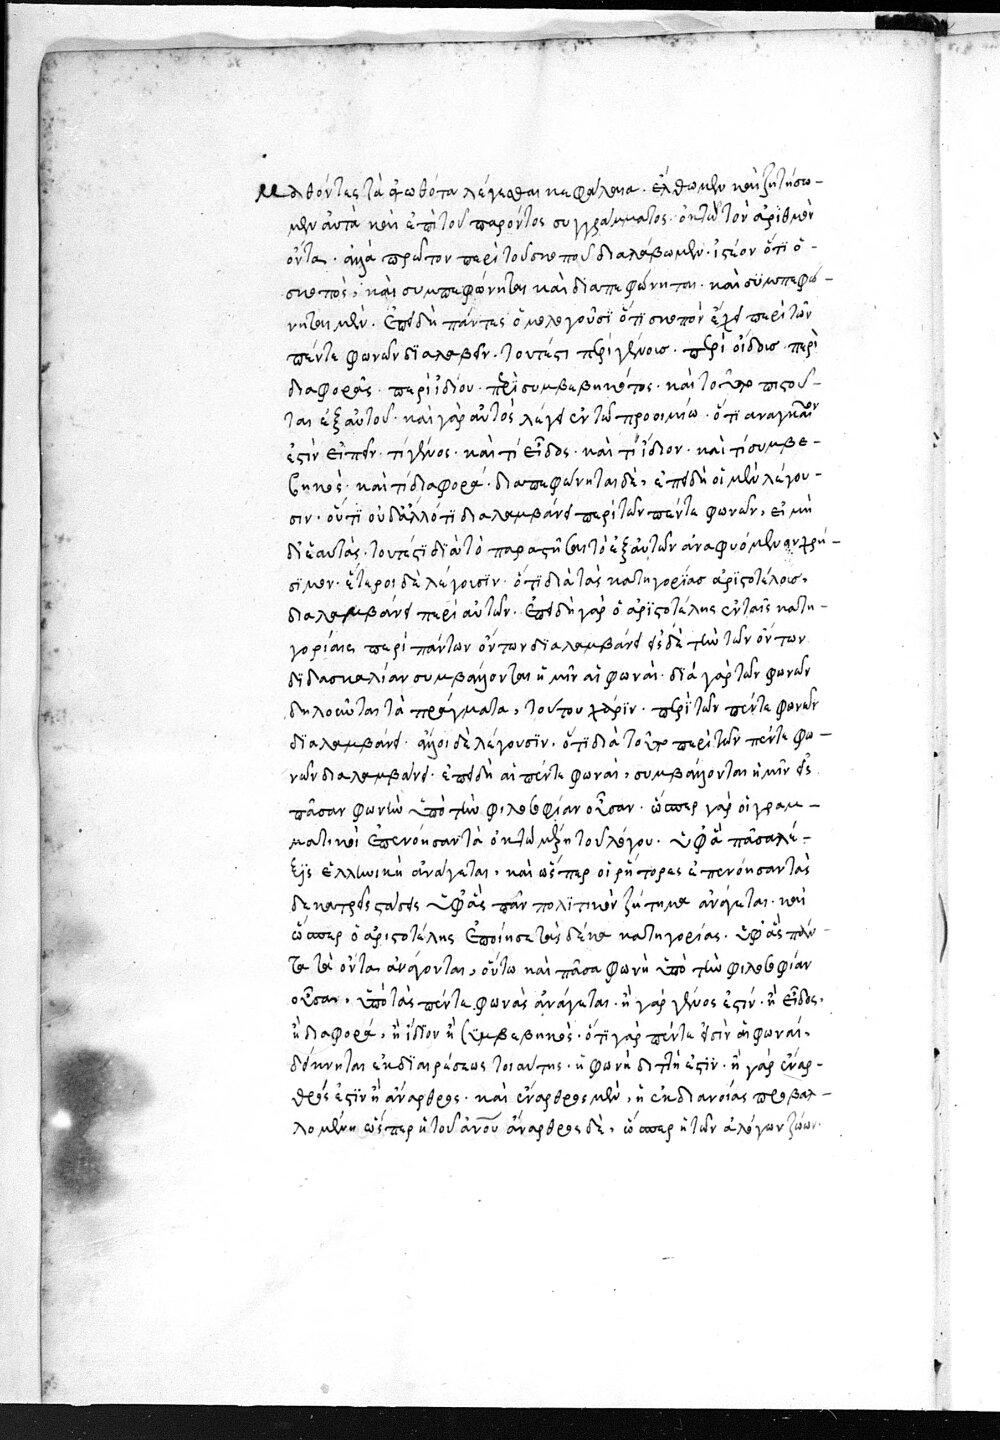 Μαθόντες τὰ εἰωθότα λέγεσθαι κεφάλαια. ἔλθωμεν καὶ ζητήσω-
μεν αὐτὰ καὶ ἐπὶ τοῦ παρόντος συγγράμματος. ὀκτὼ τὸν ἀρϊθμὸν
ὄντα. ἀλλὰ πρῶτον περὶ τοῦ σκοποῦ διαλάβωμεν. ἰστέον ὅτι ὁ-
σκοπὸς, καὶ συμπεφώνηται καὶ διαπεφώνηται. καὶ σϋμπεφώ-
νηται μὲν. ἐπειδὴ πάντες ὁμολογοῦσϊ ὅτι σκοπὸν ἔχει περὶ τῶν
πέντε φωνῶν δϊαλαβεῖν. τουτέστι περὶ γένους. περὶ εἴδους. περὶ
διαφορᾶς. περὶ ἰδίου. περὶ συμβεβηκότος. καὶ τοῦτο πιστοῦ-
ται ἐξ αὐτοῦ. καὶ γὰρ αὐτὸς λέγει ἐν τῶ προοιμίω. ὅτι ἀναγκαῖον
ἐστὶν εἰπεῖν. τί γένος. καὶ τί εἶδος. καὶ τί ἴδιον. καὶ τί συμβε-
βηκὸς. καὶ τί διαφορά. διαπεφώνηται δὲ, ἐπειδὴ οἱ μὲν λέγου-
σιν. ὅτϊ οὐ δι' ἄλλό τϊ διαλαμβάνει περὶ τῶν πέντε φωνῶν, εἰ μὴ
δι' ἑαυτὰς. τουτέστϊ δϊὰ τὸ παραστῆσαι τὸ ἐξ αὐτῶν ἀναφυόμενον χρή-
σϊμον. ἕτεροι δὲ λέγουσϊν. ὅτϊ διὰ τὰς κατηγορίας ἀρϊστοτέλους,
διαλαμβάνει περὶ αὐτῶν. ἐπειδὴ γὰρ ὁ ἀρϊστοτέλης ἐν ταῖς κατη-
γορίαις περὶ πάντων ὄντων δϊαλαμβάνει εἰς δὲ τὴν τῶν ὄντων
δϊδασκαλίαν συμβάλλονται ἡμῖν αἱ φωναὶ. δϊὰ γὰρ τῶν φωνῶν
δηλοῦνται τὰ πράγματα, τούτου χάρϊν. περὶ τῶν πέντε φωνῶν
δϊαλαμβάνει. ἄλλοι δὲ λέγουσϊν. ὅτϊ διὰ τοῦτο περὶ τῶν πέντε φω-
νῶν διαλαμβάνει. ἐπειδὴ αἱ πέντε φωναὶ, συμβάλλονται ἡμῖν εἰς
πᾶσαν φωνὴν ὑπὸ τὴν φιλοσοφίαν οὖσαν. ὥσπερ γὰρ οἱ γραμ-
ματικοὶ ἐπενόησαν τὰ ὀκτὼ μέρη τοῦ λόγου. ὑφ' ἃ πᾶσα λέ-
ξις ἑλληνικὴ ἀνάγεται, καὶ ὥσπερ οἱ ῥήτορες ἐπενόησαν τὰς
δεκατρεῖς στάσεις ὑφ' ἃς πᾶν πολϊτικὸν ζήτημα ἀνάγεται. καὶ
ὥσπερ ὁ ἀριστοτέλης ἐποίησε τὰς δέκα κατηγορίας. ὑφ' ἃς πάν-
τα τὰ ὄντα ἀνάγονται, οὕτω καὶ πᾶσα φωνὴ ὑπὸ τὴν φιλοσοφίαν
οὖσα, ὑπὸ τὰς πέντε φωνὰς ἀνάγεται. ἢ γὰρ γένος ἐστὶν. ἢ εἶδος,
ἢ διαφορά, ἢ ἴδϊον ἢ συμβεβηκὸς. ὅτϊ γὰρ πέντε εἰσὶν αἱ φωναὶ,
δείκνυται ἐκ δϊαιρέσεως τοιαύτης. ἡ φωνὴ διττὴ ἐστϊν. ἢ γὰρ ἔναρ-
θρός ἐστϊν ἢ ἄναρθρος. καὶ ἔναρθρος μὲν, ἡ ἐκ διανοίας προβαλ-
λομένη ὥσπερ ἡ τοῦ ἀνου ἄναρθρος δὲ, ὥσπερ ἡ τῶν ἀλόγων ζώων.